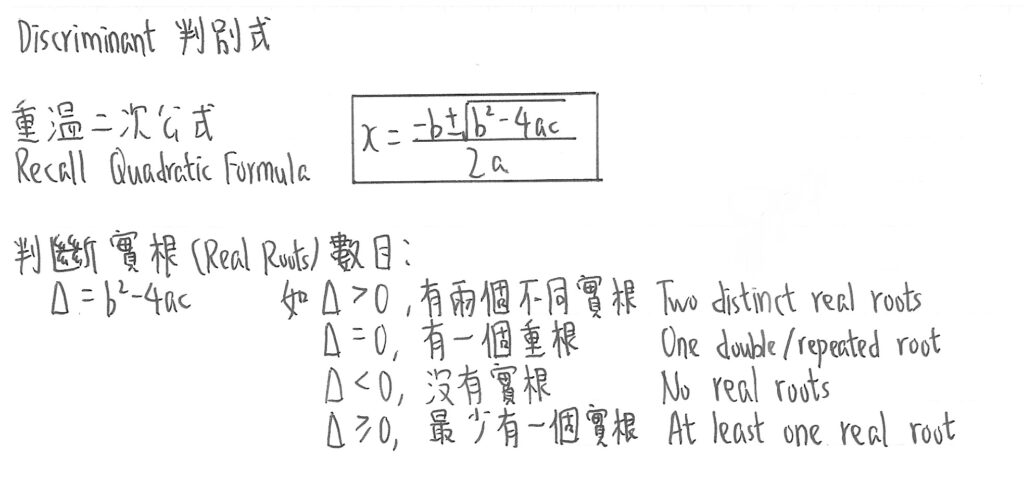 Discriminant 判別式
重溫二次公式
Recall Quadratic Formula
x = (-b±√(b²-4ac))/(2a)
判斷實根 (Real Roots) 數目:
Δ = b²-4ac 如 Δ > 0, 有兩個不同實根 Two distinct real roots
Δ = 0, 有一個重根 One double/repeated root
Δ < 0, 沒有實根 No real roots
Δ ⩾ 0, 最少有一個實根 At least one real root